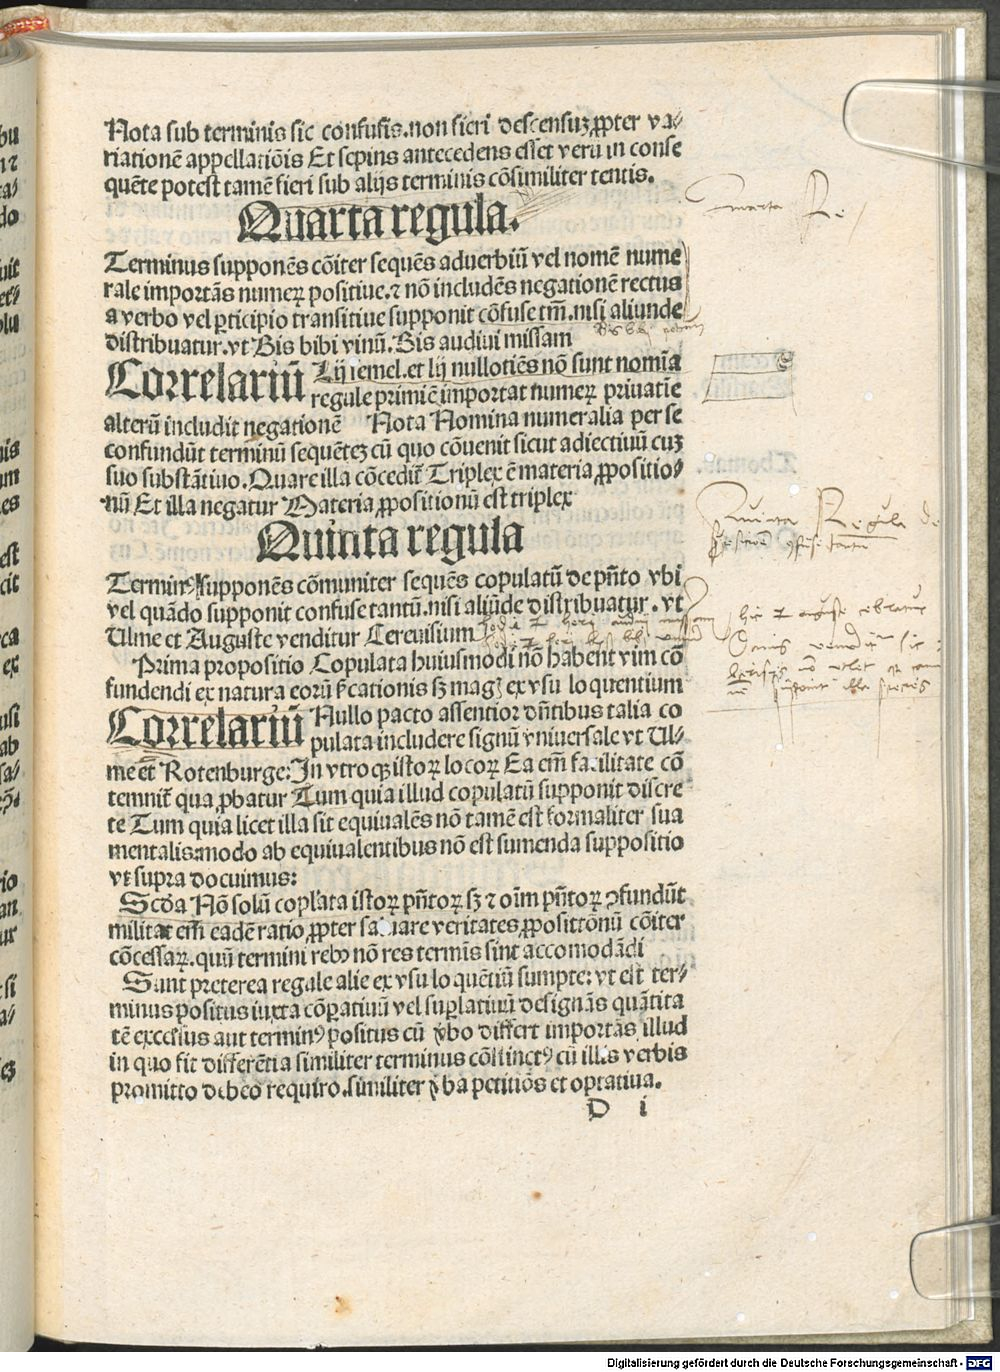 Nota sub terminis sic confusis.non fieri descensuꝫ ꝓpter va⸗
riationē appellatiōis Et sepius antecedens esset verū in conse
quēte potest tamē fieri sub alijs terminis cōsimiliter tentis.
Quarta regula.
Quarta Re
Terminus supponēs cōiter sequēs aduerbiū vel nomē nume
rale importās numeꝝ positiue.⁊ nō includēs negationē rectus
a verbo vel ꝑticipio transitiue supponit cōfuse tm̄.nisi aliunde
distribuatur.vt Bis bibi vinū.Bis audiui missam
Correlariū Lꝫ semel.et lꝫ nullotiēs nō sunt nomīa
regule primū em̄ importat numeꝝ priuatiē
alterū includit negationē Nota Nomina numeralia per se
confundūt terminū sequēteꝫ cū quo cōuenit sicut adiectiuū cuꝫ
suo substātiuo.Quare illa cōcedit̄ Triplex ē materia ꝓpositio⸗
nū Et illa negatur Materia ꝓpositionū est triplex
Quinta regula
Quinta Regula de
Terminꝰ supponēs cōmuniter sequēs copulatū de pn̄to vbi
vel quādo supponit confuse tantū.nisi aliūde distribuatur.vt
Ulme et Auguste venditur Cereuisium
Prima propositio Copulata huiusmodi nō habent vim cō
fundendi ex natura eorū sꝫ magꝭ ex vsu loquentium
Correlariū Nullo pacto assentior dn̄tibus talia co
pulata includere signū vniuersale vt Ul⸗
me et Rotenburge:In vtroqꝫ istoꝝ locoꝝ Ea em̄ facilitate cō
temnit̄ qua ꝓbatur Tum quia illud copulatū supponit discre
te Tum quia licet illa sit equiualēs nō tamē est formaliter sua
mentalis:modo ab equiualentibus nō est sumenda suppositio
vt supra docuimus:
Scd̄a Nō solū copl̓ata istoꝝ pn̄toꝝ sꝫ ⁊ oīm pn̄toꝝ ꝯfundūt
militat em̄ eadē ratio ꝓpter saluare veritates ꝓpositionū cōiter
cōcessaꝝ.quū termini rebꝰ nō res termīs sint accomodādi
Sunt preterea regule alie ex vsu loquētiū sumpte:vt est ter⸗
minus positus iuxta cōꝑatiuū vel suꝑlatiuū designās quātita
tē excessus aut terminꝰ positus cū ꝟbo differt importās illud
in quo fit differētia similiter terminus cōiunctꝰ cū illis verbis
promitto debeo requiro.similiter ꝟba petitiōs et optatiua.
D i
Digitalisierung gefördert durch die Deutsche Forschungsgemeinschaft - DFG